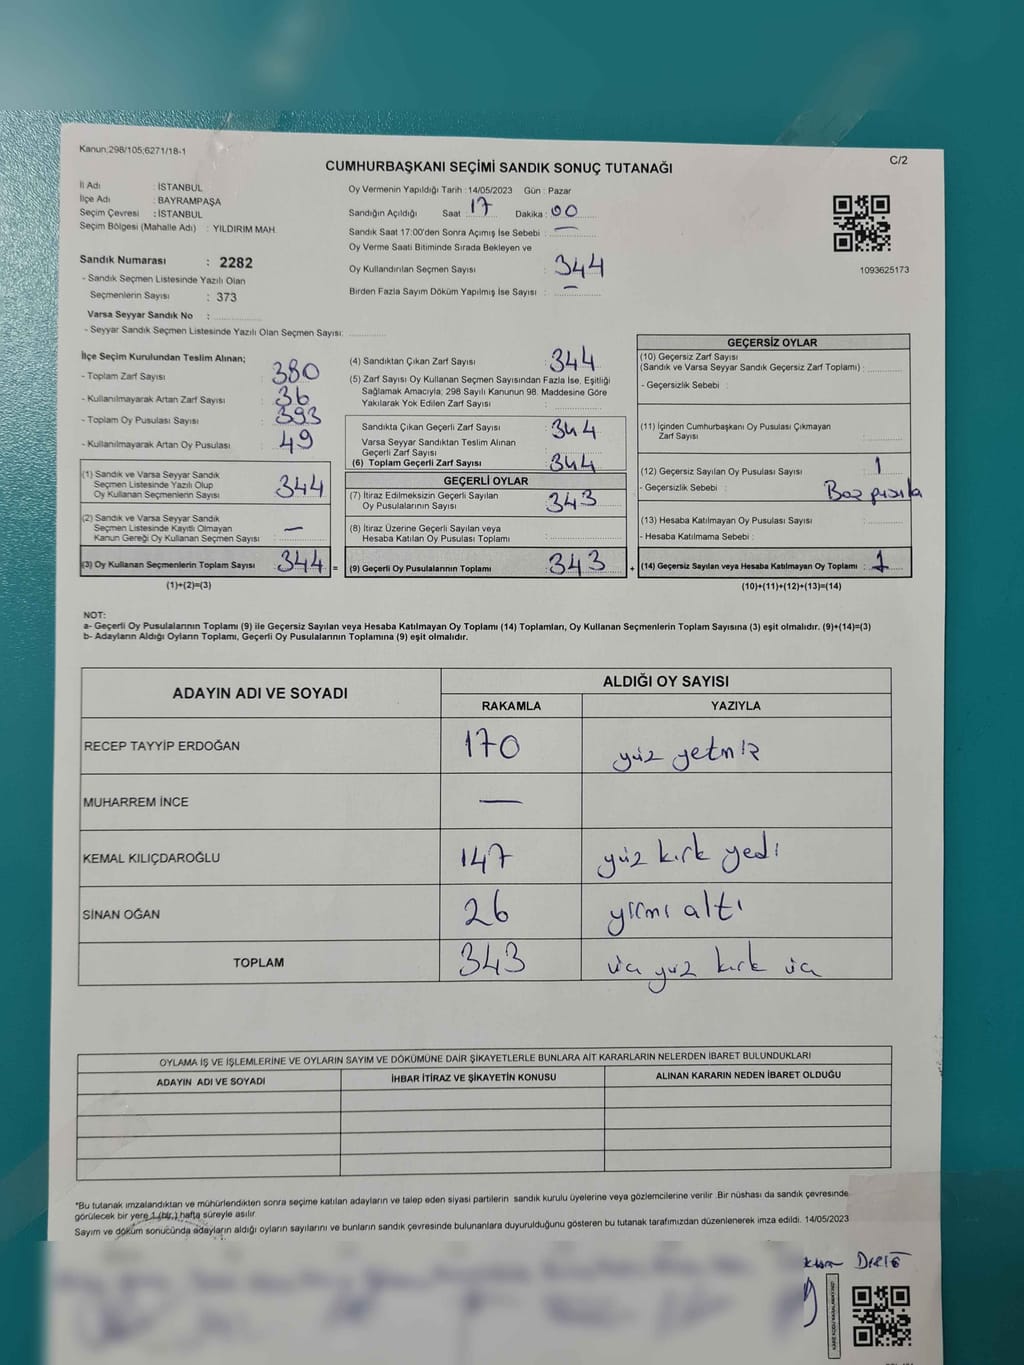 Kanun;298/105;6271/18-1
C/2
CUMHURBAŞKANI SEÇİMİ SANDIK SONUÇ TUTANAĞI
İl Adı : İSTANBUL
İlçe Adı : BAYRAMPAŞA
Seçim Çevresi : İSTANBUL
Seçim Bölgesi (Mahalle Adı) : YILDIRIM MAH.
Sandık Numarası : 2282
- Sandık Seçmen Listesinde Yazılı Olan
Seçmenlerin Sayısı : 373
Varsa Seyyar Sandık No :
- Seyyar Sandık Seçmen Listesinde Yazılı Olan Seçmen Sayısı:
Oy Vermenin Yapıldığı Tarih : 14/05/2023 Gün : Pazar
Sandığın Açıldığı Saat 17 Dakika : 00
Sandık Saat 17:00'den Sonra Açımış İse Sebebi : —
Oy Verme Saati Bitiminde Sırada Bekleyen ve
Oy Kullandırılan Seçmen Sayısı : 344
Birden Fazla Sayım Döküm Yapılmış İse Sayısı : —
1093625173
İlçe Seçim Kurulundan Teslim Alınan;
- Toplam Zarf Sayısı : 380
- Kullanılmayarak Artan Zarf Sayısı : 36
- Toplam Oy Pusulası Sayısı : 393
- Kullanılmayarak Artan Oy Pusulası : 49
(1) Sandık ve Varsa Seyyar Sandık
Seçmen Listesinde Yazılı Olup
Oy Kullanan Seçmenlerin Sayısı : 344
(2) Sandık ve Varsa Seyyar Sandık
Seçmen Listesinde Kayıtlı Olmayan
Kanun Gereği Oy Kullanan Seçmen Sayısı : —
(3) Oy Kullanan Seçmenlerin Toplam Sayısı : 344 =
(1)+(2)=(3)
(4) Sandıktan Çıkan Zarf Sayısı : 344
(5) Zarf Sayısı Oy Kullanan Seçmen Sayısından Fazla İse, Eşitliği
Sağlamak Amacıyla; 298 Sayılı Kanunun 98. Maddesine Göre
Yakılarak Yok Edilen Zarf Sayısı :
Sandıkta Çıkan Geçerli Zarf Sayısı : 344
Varsa Seyyar Sandıktan Teslim Alınan
Geçerli Zarf Sayısı :
(6) Toplam Geçerli Zarf Sayısı : 344
GEÇERLİ OYLAR
(7) İtiraz Edilmeksizin Geçerli Sayılan
Oy Pusulalarının Sayısı : 343
(8) İtiraz Üzerine Geçerli Sayılan veya
Hesaba Katılan Oy Pusulası Toplamı :
(9) Geçerli Oy Pusulalarının Toplamı : 343 +
GEÇERSİZ OYLAR
(10) Geçersiz Zarf Sayısı
(Sandık ve Varsa Seyyar Sandık Geçersiz Zarf Toplamı) :
- Geçersizlik Sebebi :
(11) İçinden Cumhurbaşkanı Oy Pusulası Çıkmayan
Zarf Sayısı :
(12) Geçersiz Sayılan Oy Pusulası Sayısı : 1
- Geçersizlik Sebebi :
(13) Hesaba Katılmayan Oy Pusulası Sayısı :
- Hesaba Katılmama Sebebi :
(14) Geçersiz Sayılan veya Hesaba Katılmayan Oy Toplamı : 1
(10)+(11)+(12)+(13)=(14)
NOT:
a- Geçerli Oy Pusulalarının Toplamı (9) ile Geçersiz Sayılan veya Hesaba Katılmayan Oy Toplamı (14) Toplamları, Oy Kullanan Seçmenlerin Toplam Sayısına (3) eşit olmalıdır. (9)+(14)=(3)
b- Adayların Aldığı Oyların Toplamı, Geçerli Oy Pusulalarının Toplamına (9) eşit olmalıdır.
ADAYIN ADI VE SOYADI
ALDIĞI OY SAYISI
RAKAMLA YAZIYLA
RECEP TAYYİP ERDOĞAN 170 yüz yetmiz
MUHARREM İNCE —
KEMAL KILIÇDAROĞLU 147 yüz kırk yedi
SİNAN OĞAN 26 yirmi altı
TOPLAM 343 üç yüz kırk üç
OYLAMA İŞ VE İŞLEMLERİNE VE OYLARIN SAYIM VE DÖKÜMÜNE DAİR ŞİKAYETLERLE BUNLARA AİT KARARLARIN NELERDEN İBARET BULUNDUKLARI
ADAYIN ADI VE SOYADI İHBAR İTİRAZ VE ŞİKAYETİN KONUSU ALINAN KARARIN NEDEN İBARET OLDUĞU
*Bu tutanak imzalandıktan ve mühürlendikten sonra seçime katılan adayların ve talep eden siyasi partilerin sandık kurulu üyelerine veya gözlemcilerine verilir. Bir nüshası da sandık çevresinde
görülecek bir yere 1 (bir) hafta süreyle asılır
Sayım ve döküm sonucunda adayların aldığı oyların sayılarını ve bunların sandık çevresinde bulunanlara duyurulduğunu gösteren bu tutanak tarafımızdan düzenlenerek imza edildi. 14/05/2023